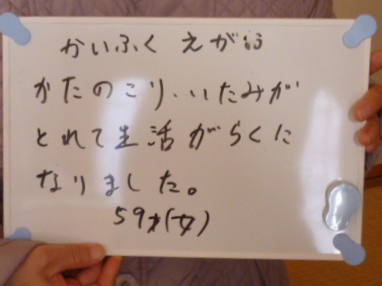 かいふく えがお
かたのこり、いたみが
とれて生活がらくに
なりました。
59才(女)